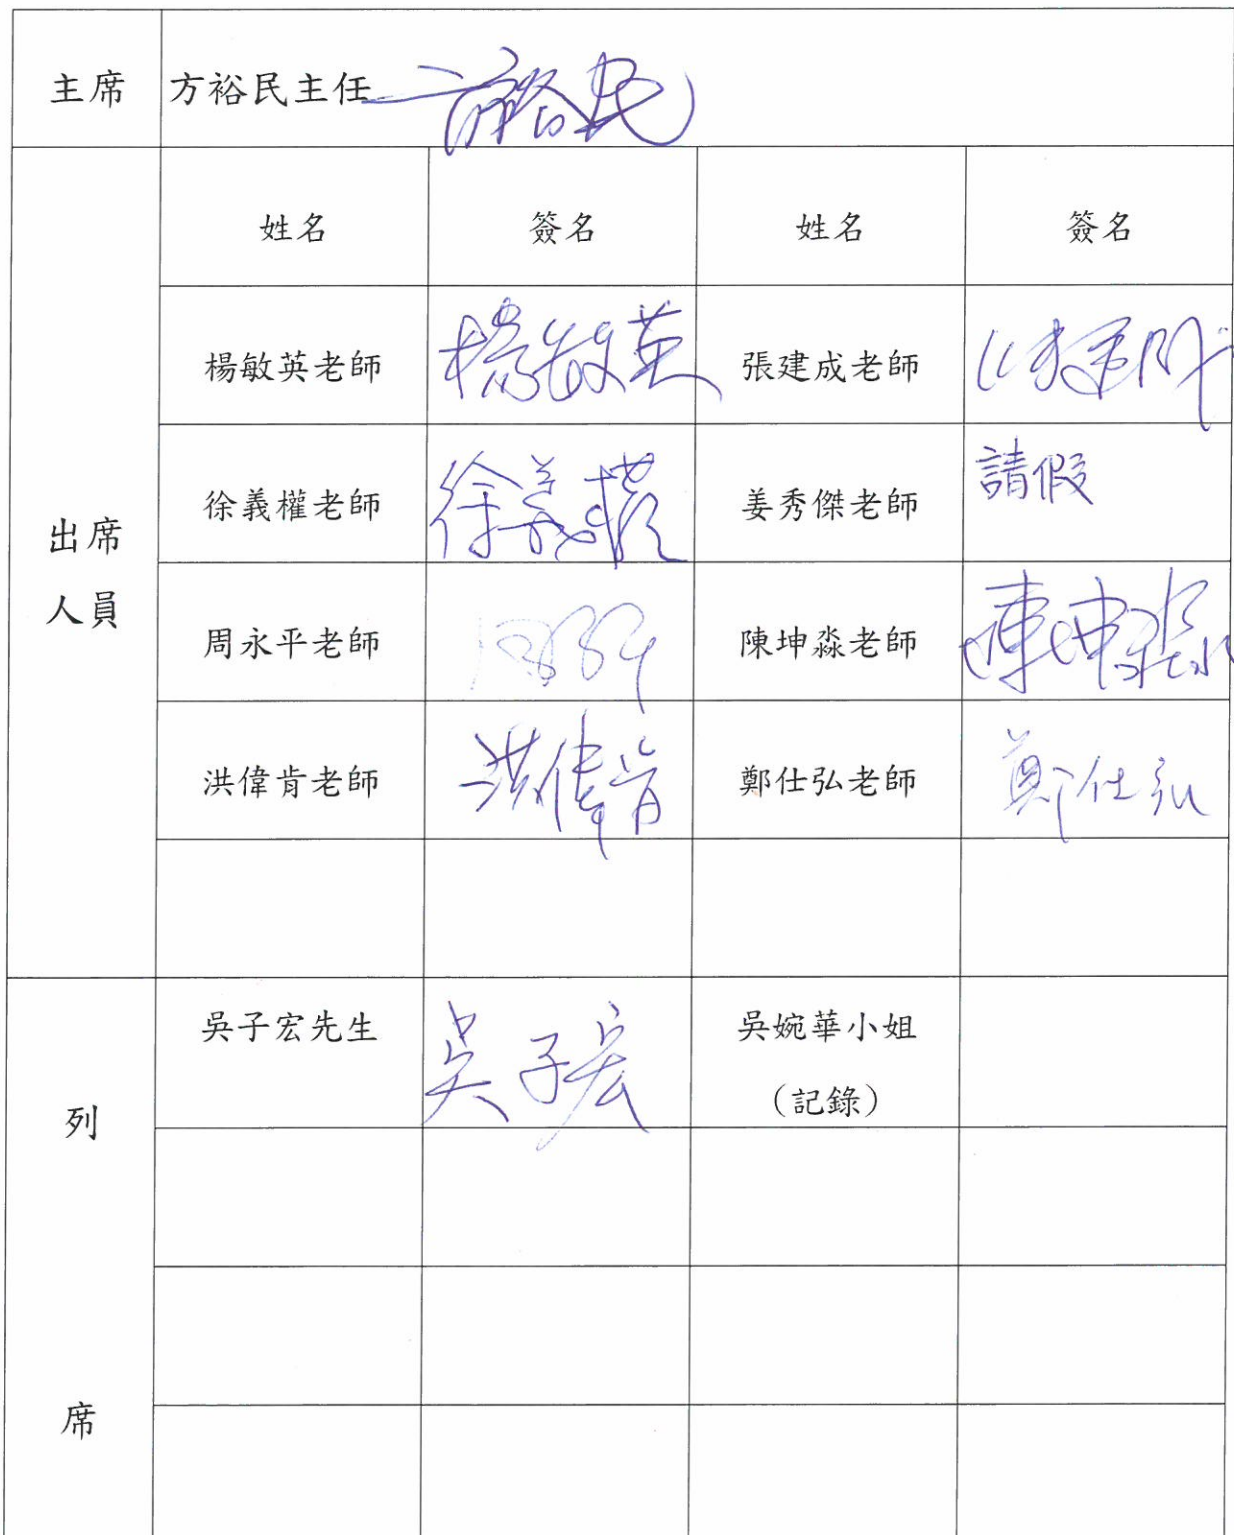 主席 方裕民主任 方裕民
姓名 簽名 姓名 簽名
楊敏英老師 楊敏英 張建成老師 張建成
徐義權老師 徐義權 姜秀傑老師 請假
出席
人員
周永平老師 陳坤淼老師 陳坤淼
洪偉肯老師 洪偉肯 鄭仕弘老師 鄭仕弘
吳子宏先生 吳子宏 吳婉華小姐
(記錄)
列
席